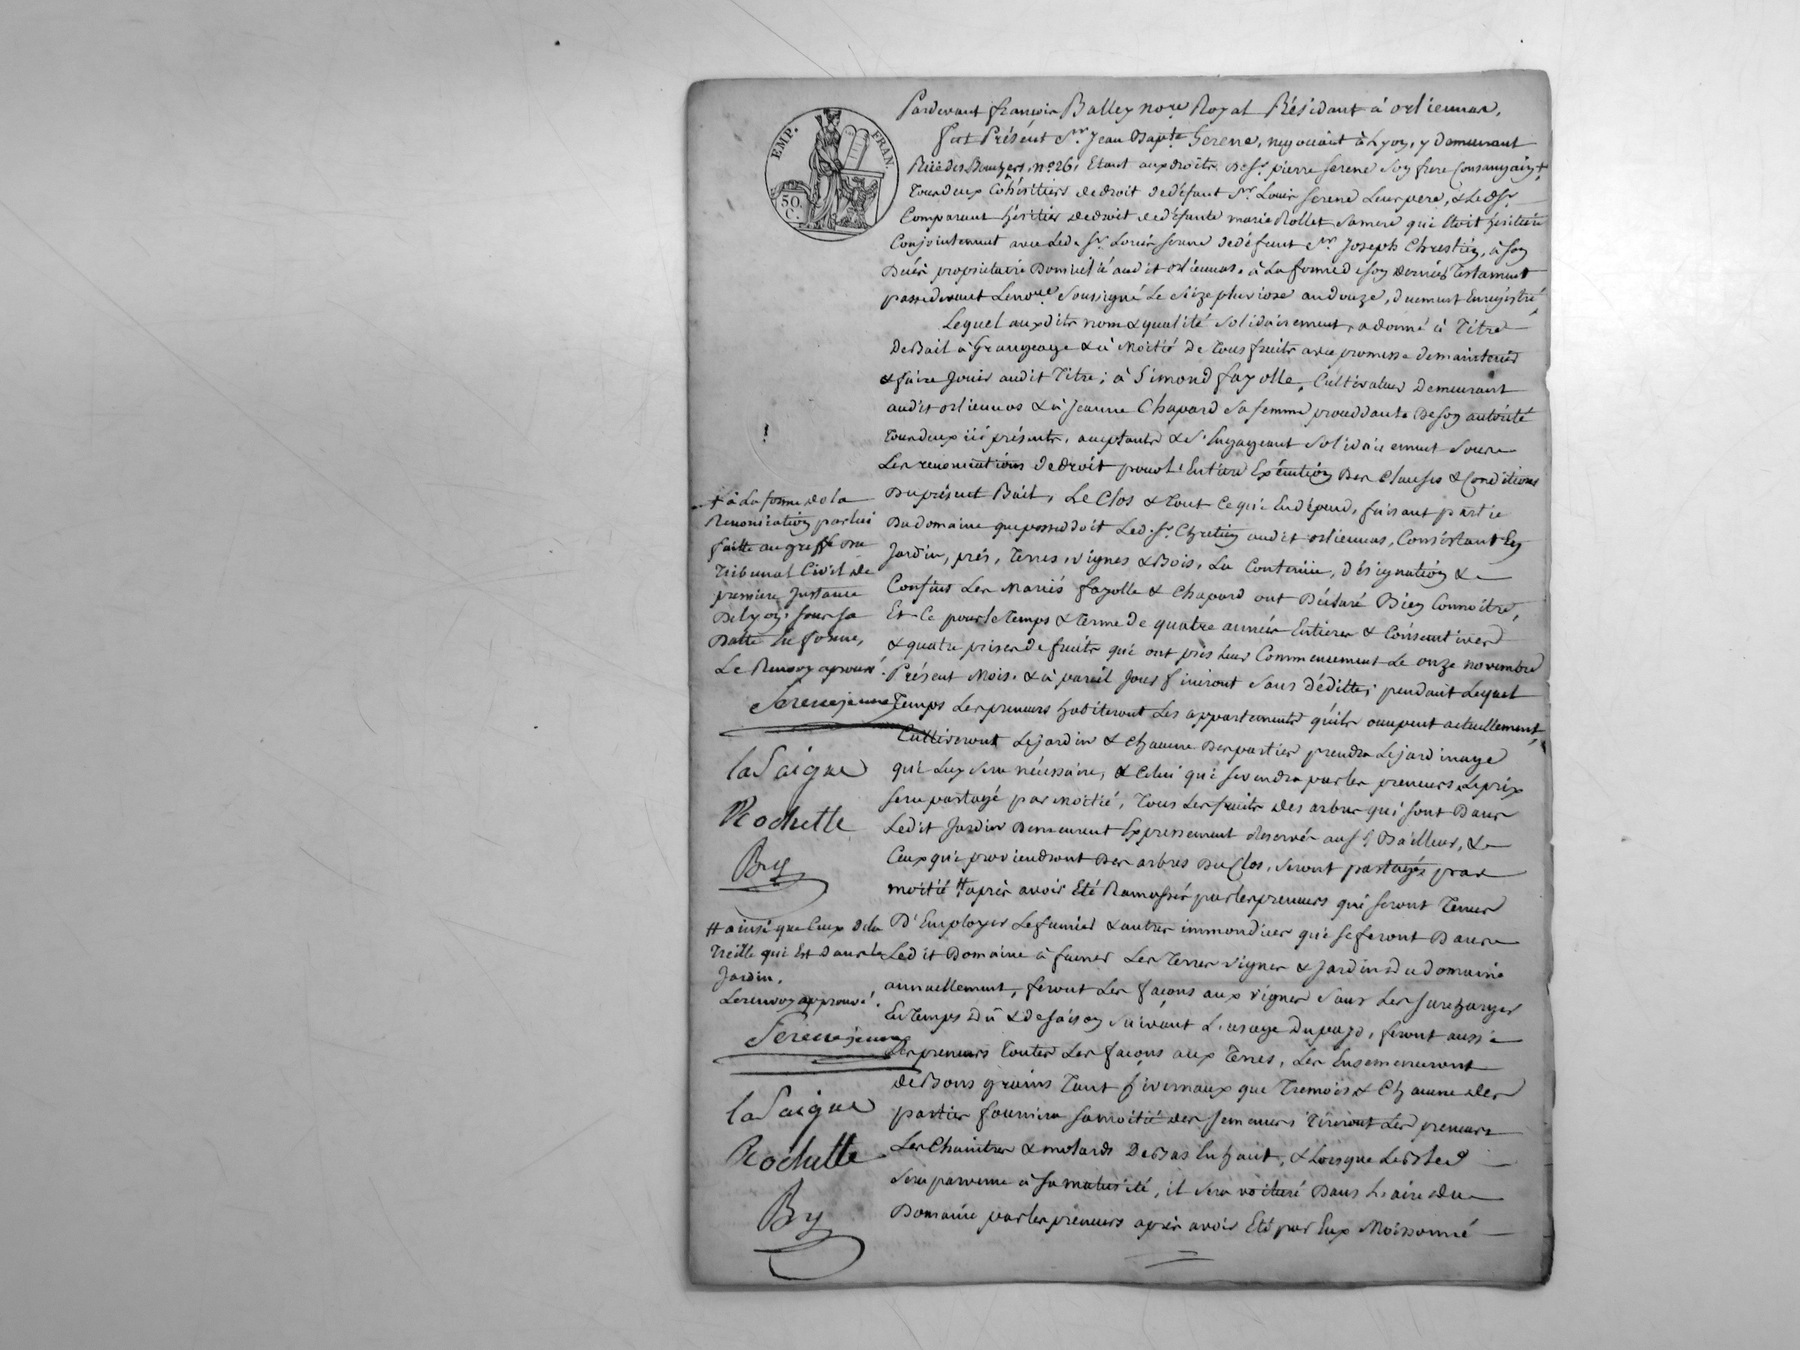 EMP. FRAN.
50. C.
Pardevant françois Balley no.re Royal Résidant à orliennas,
fut Présent S.r Jean Bap.te Serene, negociant à Lyon, y demeurant
Rüe des Bouchers, n.o 26, Etant aux droits de S.r pierre serene son frere Consanguin +
tous deux Cohéritiers de droit de défunt S.r Louis serene Leur pere, & Led. S.r
Comparant héritier de droit de défunte marie Rollet sa mere qui étoit héritière
Conjointement avec Led. S.r Louis serene de défunt S.r Joseph Chrestien, à son
Décès propriétaire Domicilié audit orliennas, à La forme de son dernier Testament
passé devant Le no.re soussigné Le seize pluviose an douze, duement Enregistré,
Lequel auxdits nom & qualité solidairement, a donné à Titre
De Bail à Grangeage & à Moitié De tous fruits avec promesse de maintenir
& faire Jouir audit Titre; à Simond fayolle, Cultivateur Demeurant
audit orliennas & à Jeanne Chapard sa femme procédant De son autorité
tous deux ici présents, acceptants & s'Engageant solidairement sous
Les renonciations de droit pour l'Entière Exécution Des Clauses & Conditions
Du présent Bail, Le Clos & tout Ce qui En dépend, faisant partie
Du domaine que possédoit Led. S.r Chretien audit orliennas, Consistant En
Jardin, prés, Terres, vignes & Bois, La Contenue, désignation &
Confins Les Mariés fayolle & Chapard ont Déclaré Bien Connoitre,
Et Ce pour le Temps & terme de quatre années Entieres & Consécutives
& quatre prises de fruits qui ont pris Leur Commencement Le onze novembre
Présent Mois, & à pareil Jour finiront sans déditte; pendant Lequel
Temps Les preneurs habiteront Les appartements qu'ils occupent actuellement,
Cultiveront Le jardin & Chacune Des parties prendra Le jardinage
qui Luy sera nécessaire, & Celui qui se vendra par les preneurs Le prix
sera partagé par Moitié, Tous Les fruits des arbres qui sont Dans
Ledit Jardin Demeurent Expressement réservés au S.r Bailleur, &
Ceux qui proviendront Des arbres Du Clos, seront partagés par
moitié # après avoir Eté Ramassés par les preneurs qui seront Tenus
D'Employer Le fumier & autres immondices qui se feront Dans
Ledit Domaine à fumer Les Terres vignes & Jardins du domaine
annuellement, feront Les façons aux vignes sans Les surcharger
En Temps Dû & de saison suivant L'usage Du pays, feront aussi
Les preneurs toutes Les façons aux Terres, Les Ensemenceront
de Bons grains Tant hivernaux que Tremois & Chacune des
parties fournira sa moitié des semences, Tireront Les preneurs
Les Chaintres & molards De Bas En haut, & Lorsque Le Bled
sera parvenu à sa maturité, il sera voituré Dans L'aire du
Domaine par les preneurs après avoir Eté par Eux Moissonné
+ à La forme de la
Renonciation par lui
faitte au greffe du
Tribunal Civil de
premiere Instance
De Lyon, sous sa
Datte En forme,
Le Renvoy aprouvé.
Serene jeune
la Saigne
Rochette
Bry
# ainsi que Ceux de la
Treille qui Est Dans le
Jardin,
Le renvoy approuvé.
Serene jeune
la Saigne
Rochette
Bry